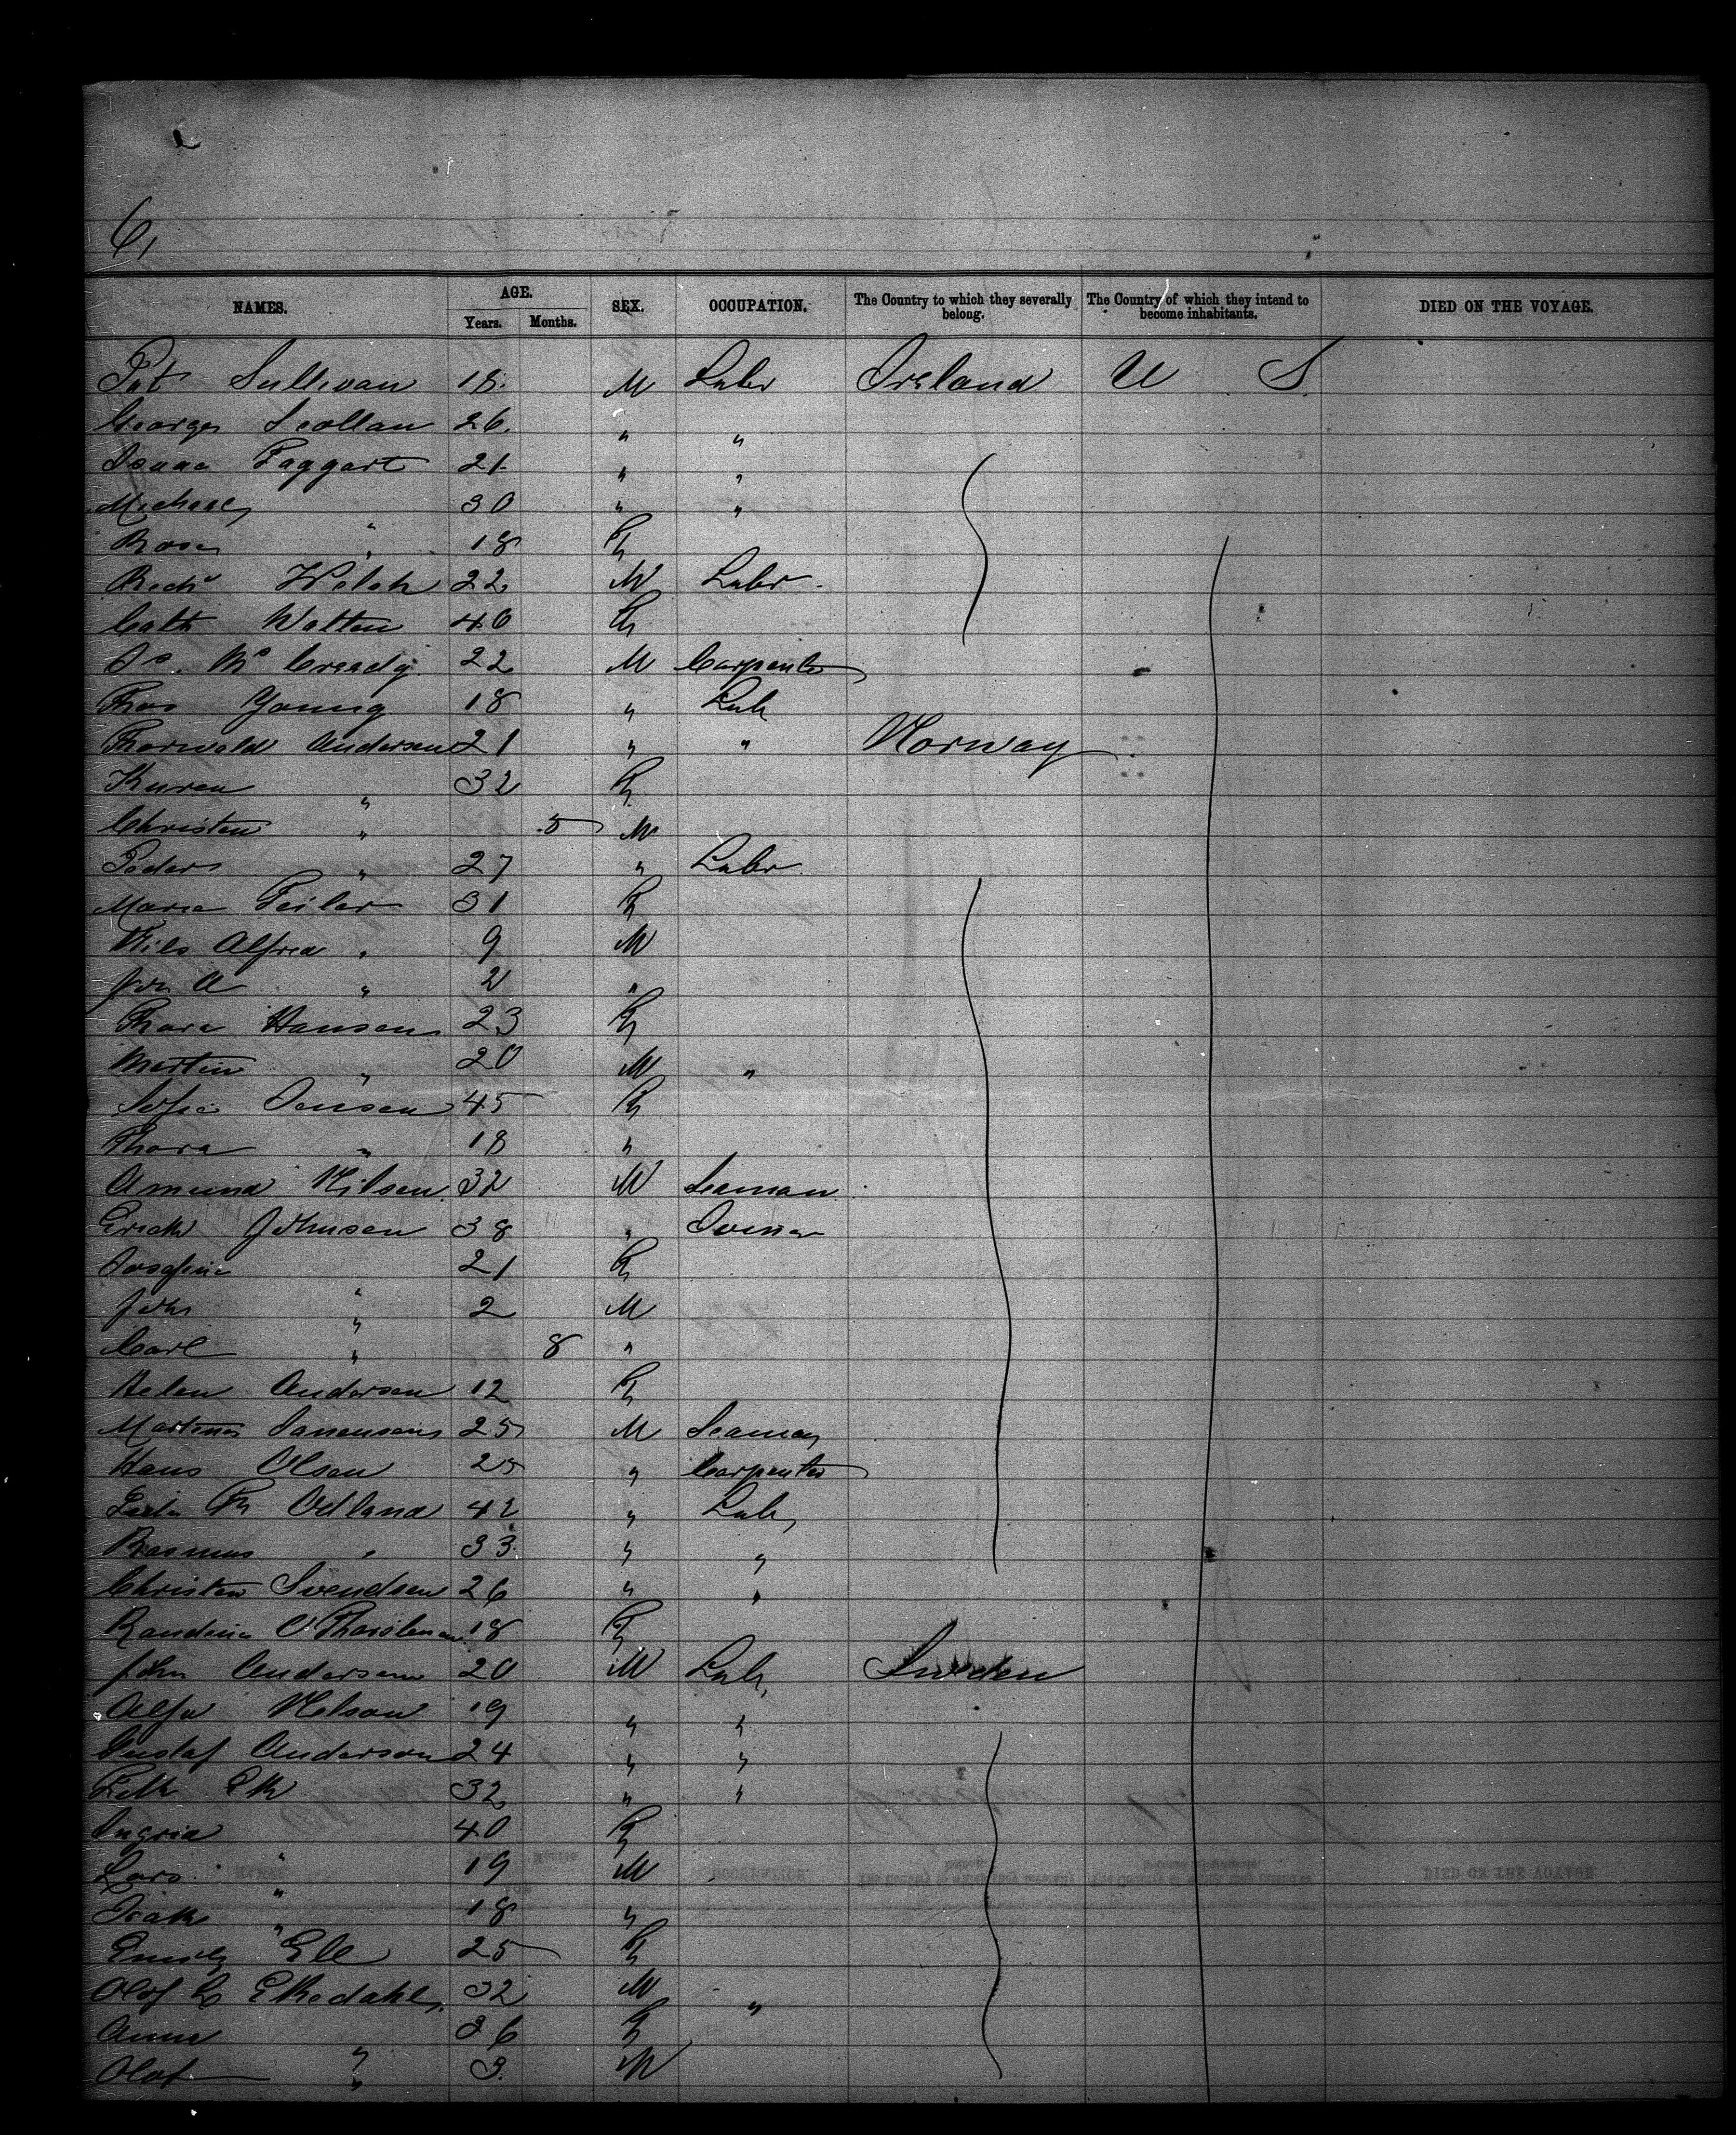 6,
NAMES. AGE. Years. Months. SEX. OCCUPATION. The Country to which they severally belong. The Country of which they intend to become inhabitants. DIED ON THE VOYAGE.
Pat Sullivan 18 M Labr Ireland U S
George Scollan 26 " "
Isaac Taggart 21 " "
Michael " 30 " "
Rose " 18 F
Richd Welsh 22 M Labr
Cath Watten 40 F
Js McCready 22 M Carpenter
Thos Young 18 " Lab
Thorwald Andersen 21 " " Norway
Karen " 32 F
Christen " 5 M
Peder " 27 " Labr
Maria Feiler 31 F
Nils Alfred " 9 M
Joh A " 2 "
Thora Hansen 23 F
Martin " 20 M "
Sofie Jensen 45 F
Thora " 18 "
Amund Nilsen 32 M Seaman
Erick Johnsen 38 "
Josefine " 21 F
Joh " 2 M
Carl " 8 "
Helen Andersen 12 F
Martinus 25 M Seaman
Hans Olsen 25 " Carpenter
Odland 42 " Lab
Rasmus " 33 " "
Christen Svendsen 26 " "
18 F
John Andersen 20 M Lab, Sweden
Alfr Nelson 19 " "
Gustaf Anderson 24 " "
Ek 32 " "
Ingrid " 40 F
Lars " 19 M
Isak " 18 "
Emily Ell 25 F
Olof Ekedahl 32 M "
Anna " 26 F
Olof " 3 M